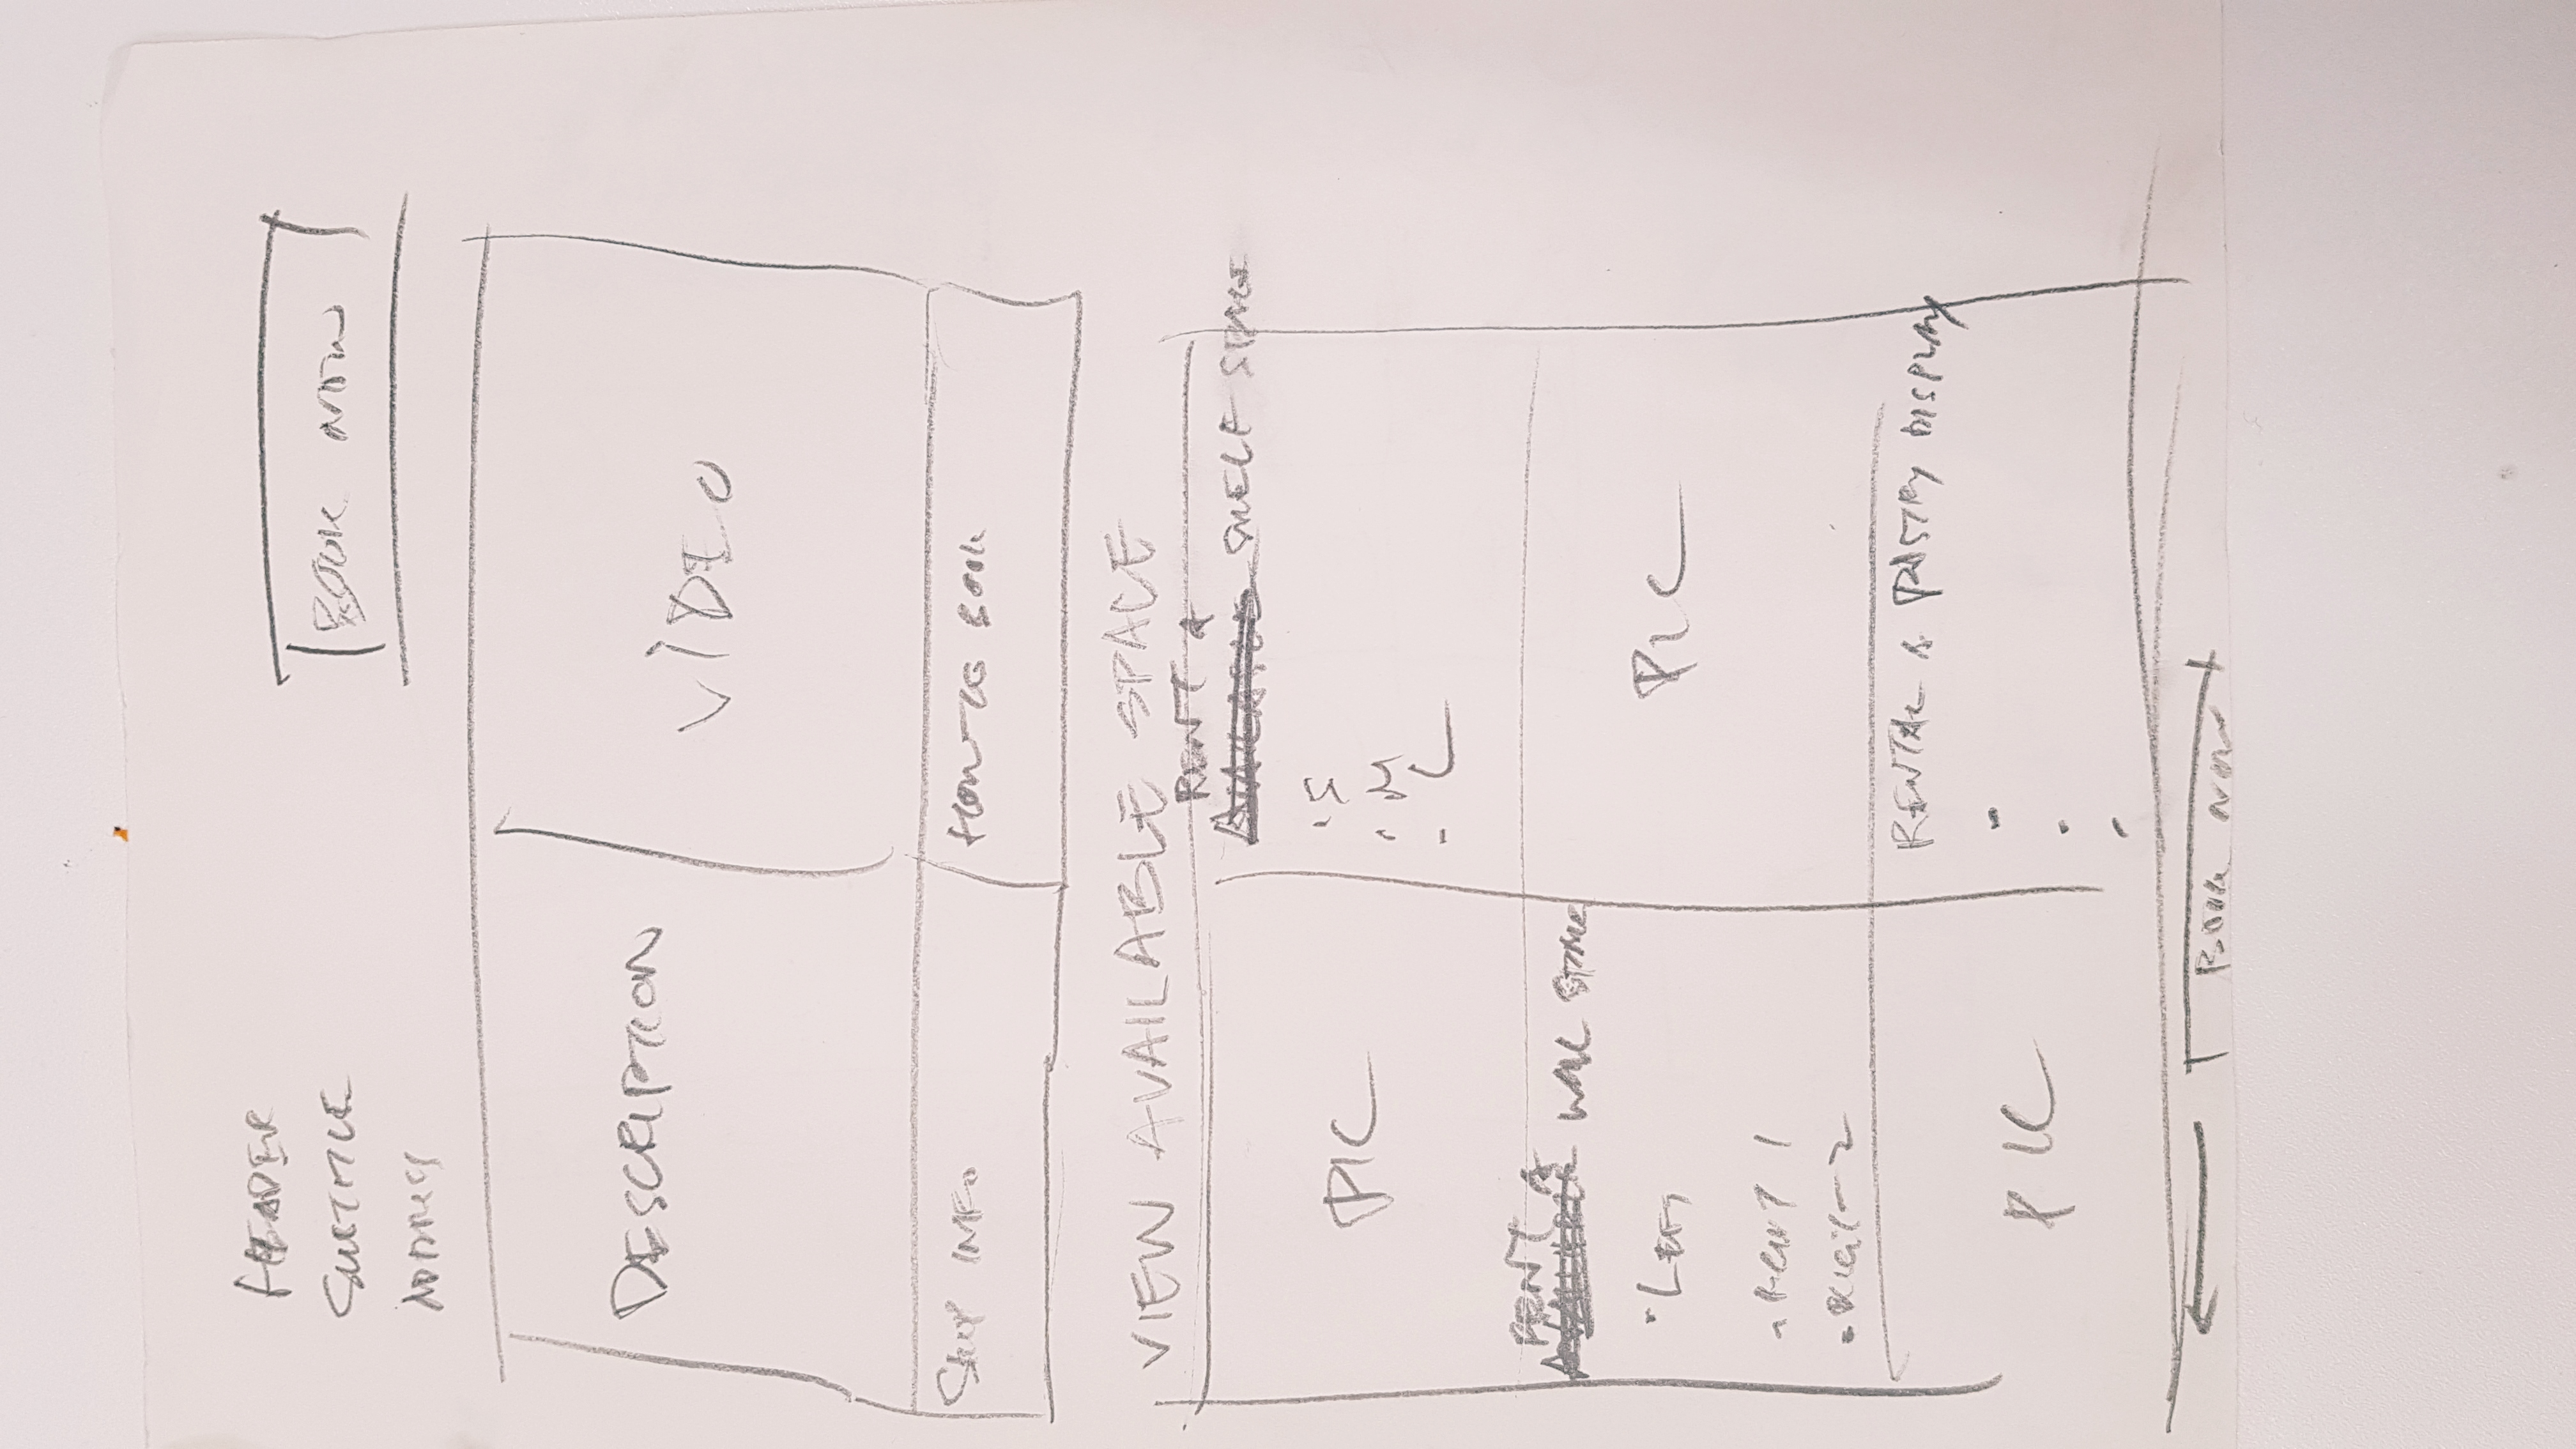 HEADER
SUBTITLE
ADDRESS
BOOK NOW
DESCRIPTION
VIDEO
SHOP INFO
HOW TO BOOK
VIEW AVAILABLE SPACE
PIC
RENT A
AVAILABLE SHELF SPACE
· S
· M
- L
RENT A
AVAILABLE WALL SPACE
· LEFT
- RIGHT 1
· RIGHT 2
PIC
PIC
RENTAL A PASTRY DISPLAY
-
·
-
BOOK NOW